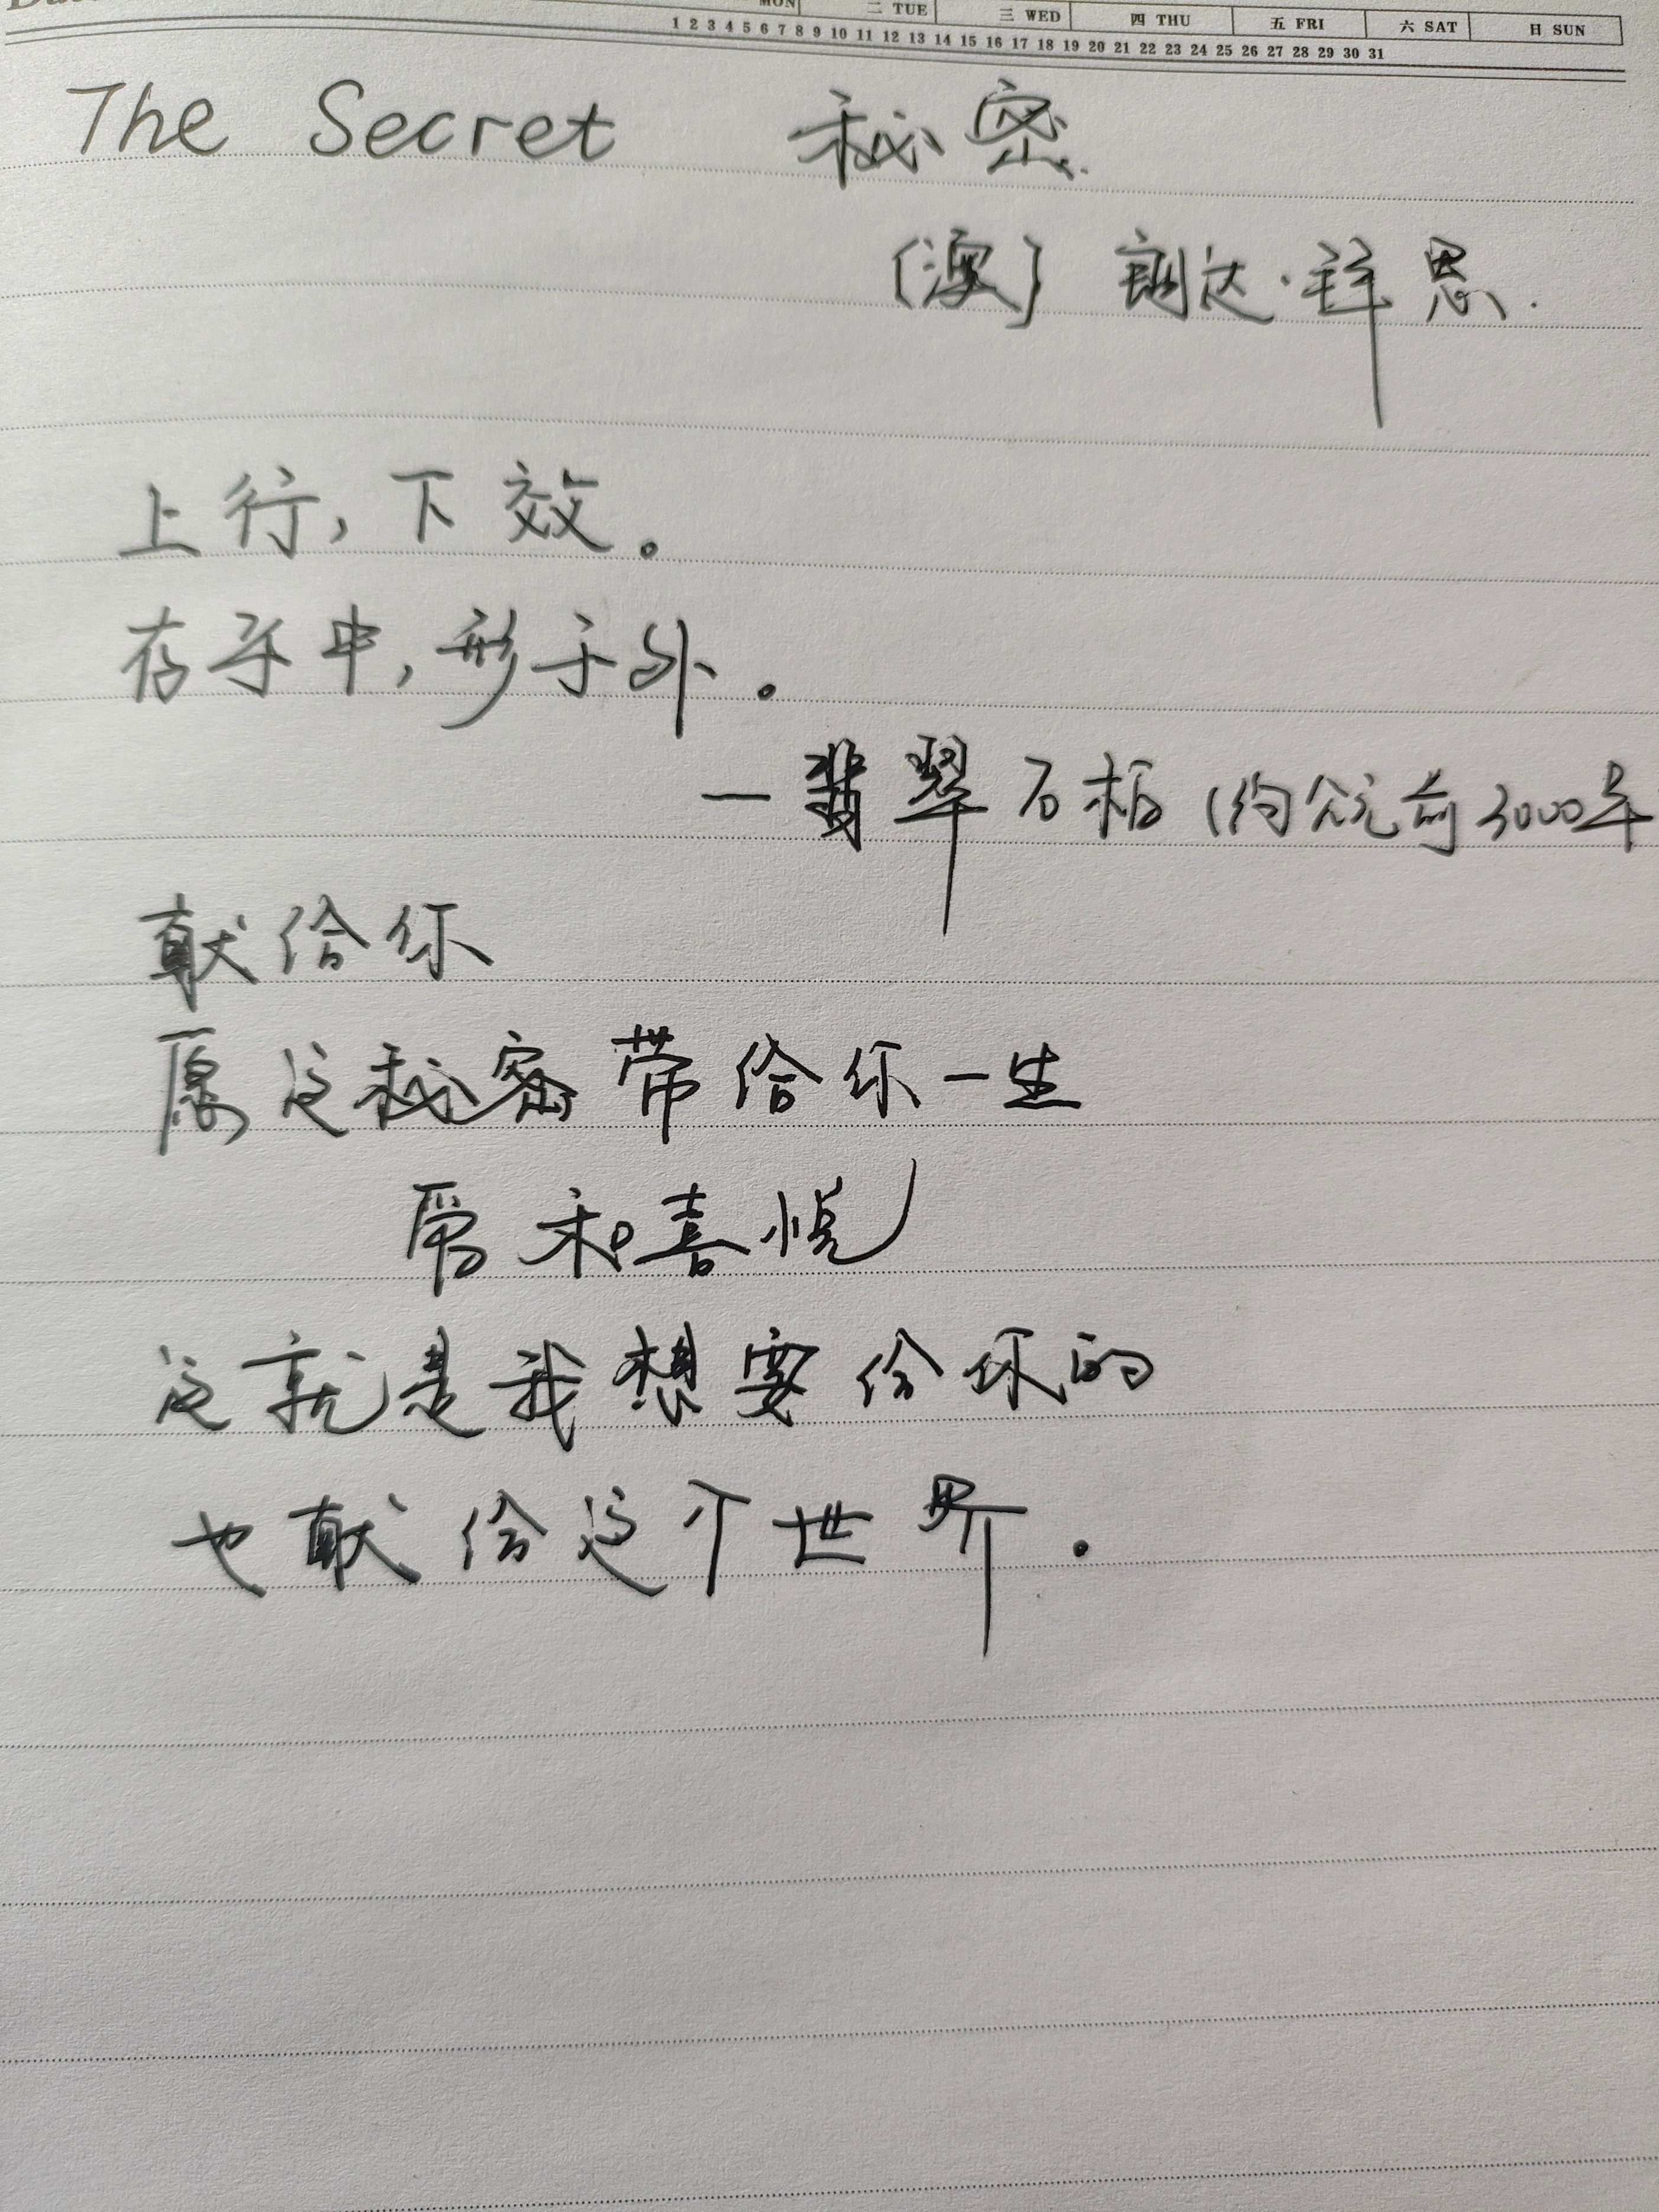 MON 二 TUE 三 WED 四 THU 五 FRI 六 SAT 日 SUN
1 2 3 4 5 6 7 8 9 10 11 12 13 14 15 16 17 18 19 20 21 22 23 24 25 26 27 28 29 30 31
The Secret 秘密.
[澳] 朗达·拜恩.
上行,下效。
存乎中,形于外。
—翡翠石板(约公元前3000年
献给你
愿这秘密带给你一生
爱和喜悦
这就是我想要给你的
也献给这个世界.